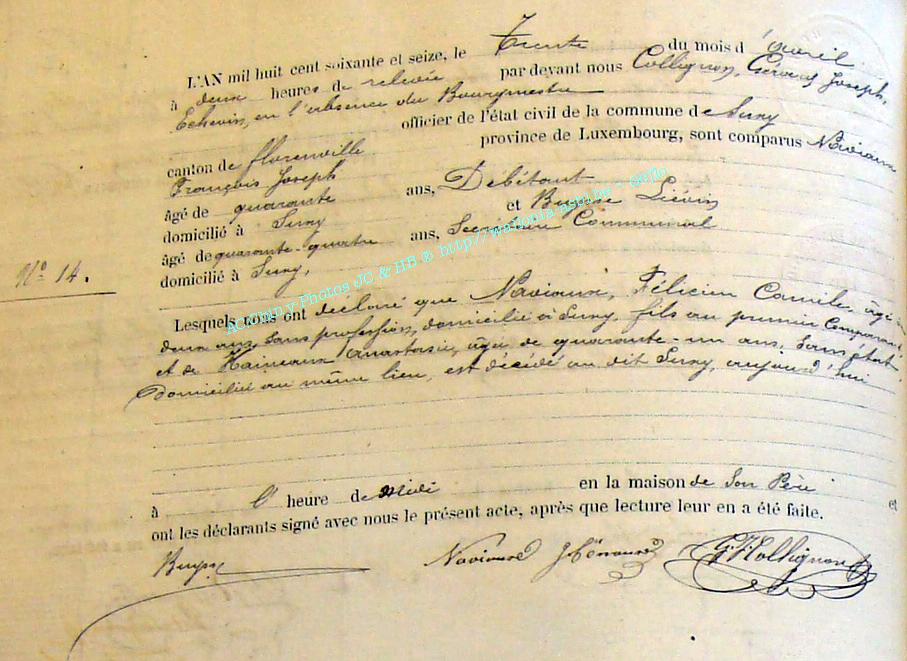 L'AN mil huit cent soixante et seize, le Trente du mois d'avril
à deux heures de relevée par devant nous Collignon, Gérard Joseph,
Echevin, en l'absence du Bourgmestre
officier de l'état civil de la commune de Suny
canton de florenville province de Luxembourg, sont comparus Naviaux
François Joseph
âgé de quarante ans, Débitant
domicilié à Suny et Buysse Liévin
âgé de quarante-quatre ans, Secrétaire Communal
domicilié à Suny,
N° 14.
Lesquels nous ont déclaré que Naviaux, Félicien Camile, âgé de
deux ans, sans profession, domicilié à Suny, fils au premier Comparant
et de Haineaux Anastasie, âgée de quarante-un ans, Sans état,
Domiciliée au même lieu, est décédé au dit Suny, aujourd'hui
à l' heure de midi en la maison de Son Père et
ont les déclarants signé avec nous le présent acte, après que lecture leur en a été faite.
Buysse Naviaux G J Collignon